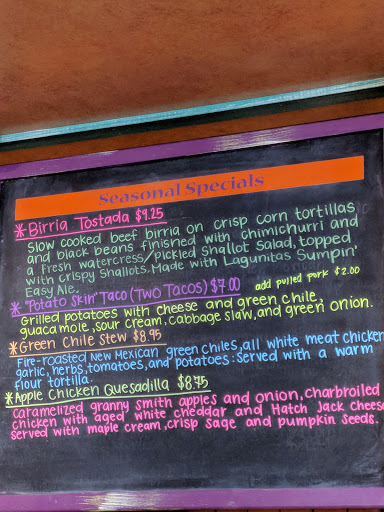 Seasonal Specials
*Birria Tostada $9.25
Slow cooked beef birria on crisp corn tortillas
and black beans finished with chimichurri and
a fresh watercress/pickled shallot Salad, topped
with Crispy Shallots. Made with Lagunitas Sumpin'
Easy Ale.
*"Potato Skin" Taco (Two Tacos) $7.00 add pulled pork $2.00
Grilled potatoes with cheese and green chile,
guacamole, sour cream, cabbage slaw, and green onion.
*Green Chile Stew $8.95
Fire-roasted New Mexican green chiles, all white meat chicken
garlic, herbs, tomatoes, and potatoes. Served with a warm
flour tortilla.
*Apple Chicken Quesadilla $8.45
Caramelized granny smith apples and onion, charbroiled
chicken with aged white cheddar and Hatch Jack cheese
served with maple cream, crisp sage and pumpkin seeds.